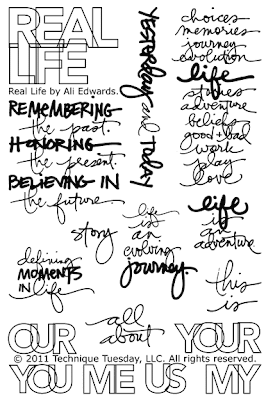 REAL
LIFE
Real Life by Ali Edwards.
REMEMBERING
the past.
HONORING
the present.
BELIEVING IN
the future.
YESTERDAY and TODAY
choices
memories
journey
evolution
life
stories
adventure
beliefs
good + bad
work
play
love
story
life
is
an
evolving
journey.
life
is
an
adventure
defining
MOMENTS
IN
life
this
is
all
about
OUR
YOUR
© 2011 Technique Tuesday, LLC. All rights reserved.
YOU ME US MY